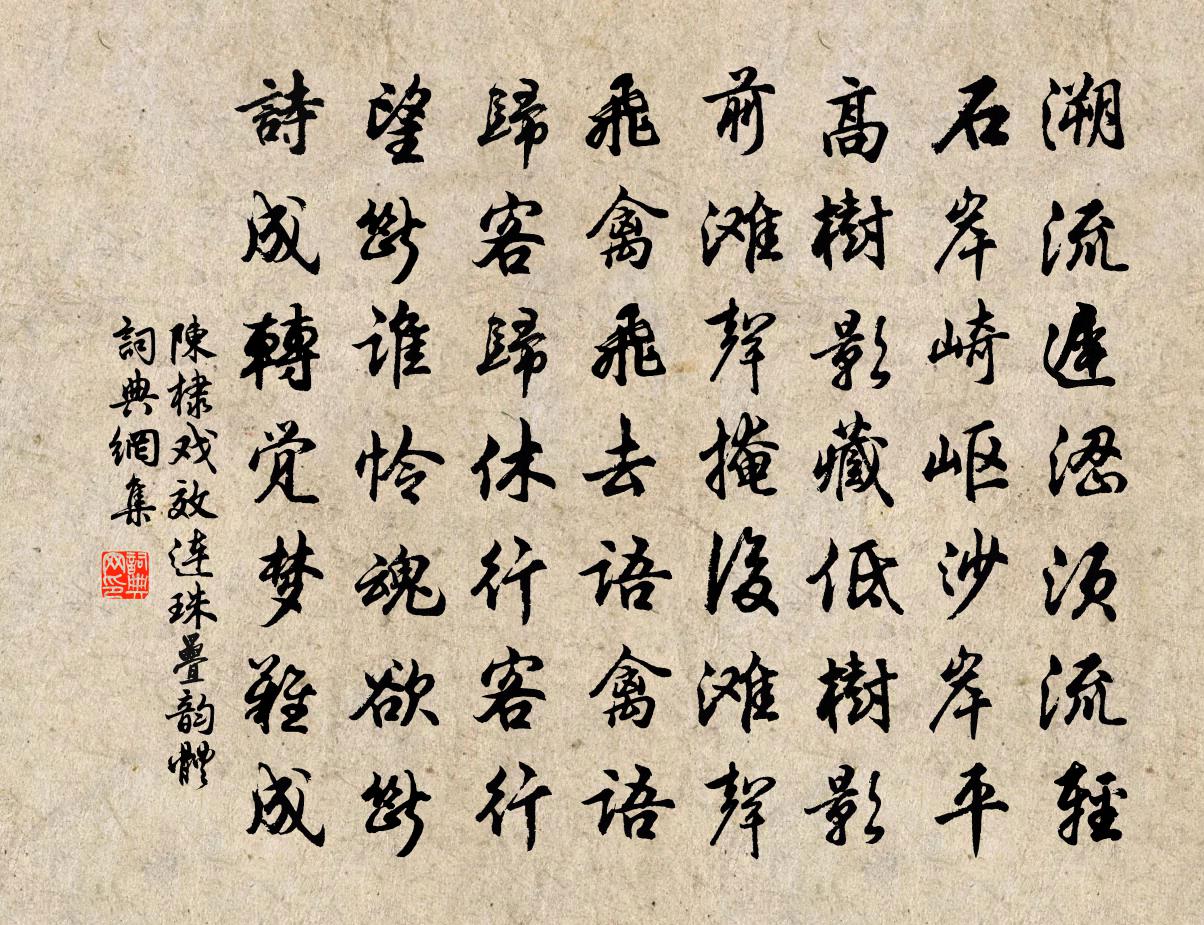 溯流遲涩顺流輕
石岸崎岖沙岸平
高樹影藏低樹影
前滩聲掩後滩聲
飛禽飛去語禽語
歸客歸休行客行
望斷誰怜魂欲斷
詩成轉觉梦難成
陳棣戏效連珠疊韵體
詞典網集
詞典网印